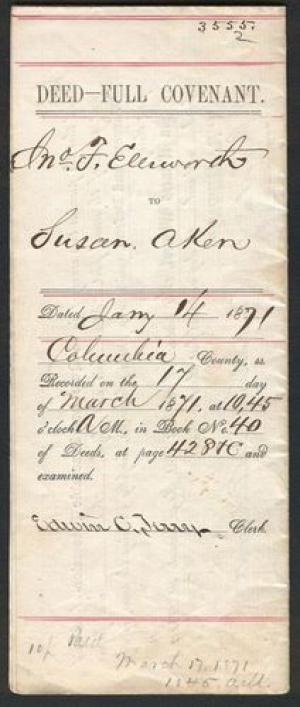 3555.
2
DEED—FULL COVENANT.
Jno. F. Ellsworth
TO
Susan Aken
Dated Jany 14 1871
Columbia County, ss.
Recorded on the 17 day
of March 1871, at 10,45
o'clock A M., in Book No. 40
of Deeds, at page 428 &c and
examined.
Edwin C. Terry Clerk.
Paid
March 17, 1871
1045 A.M.